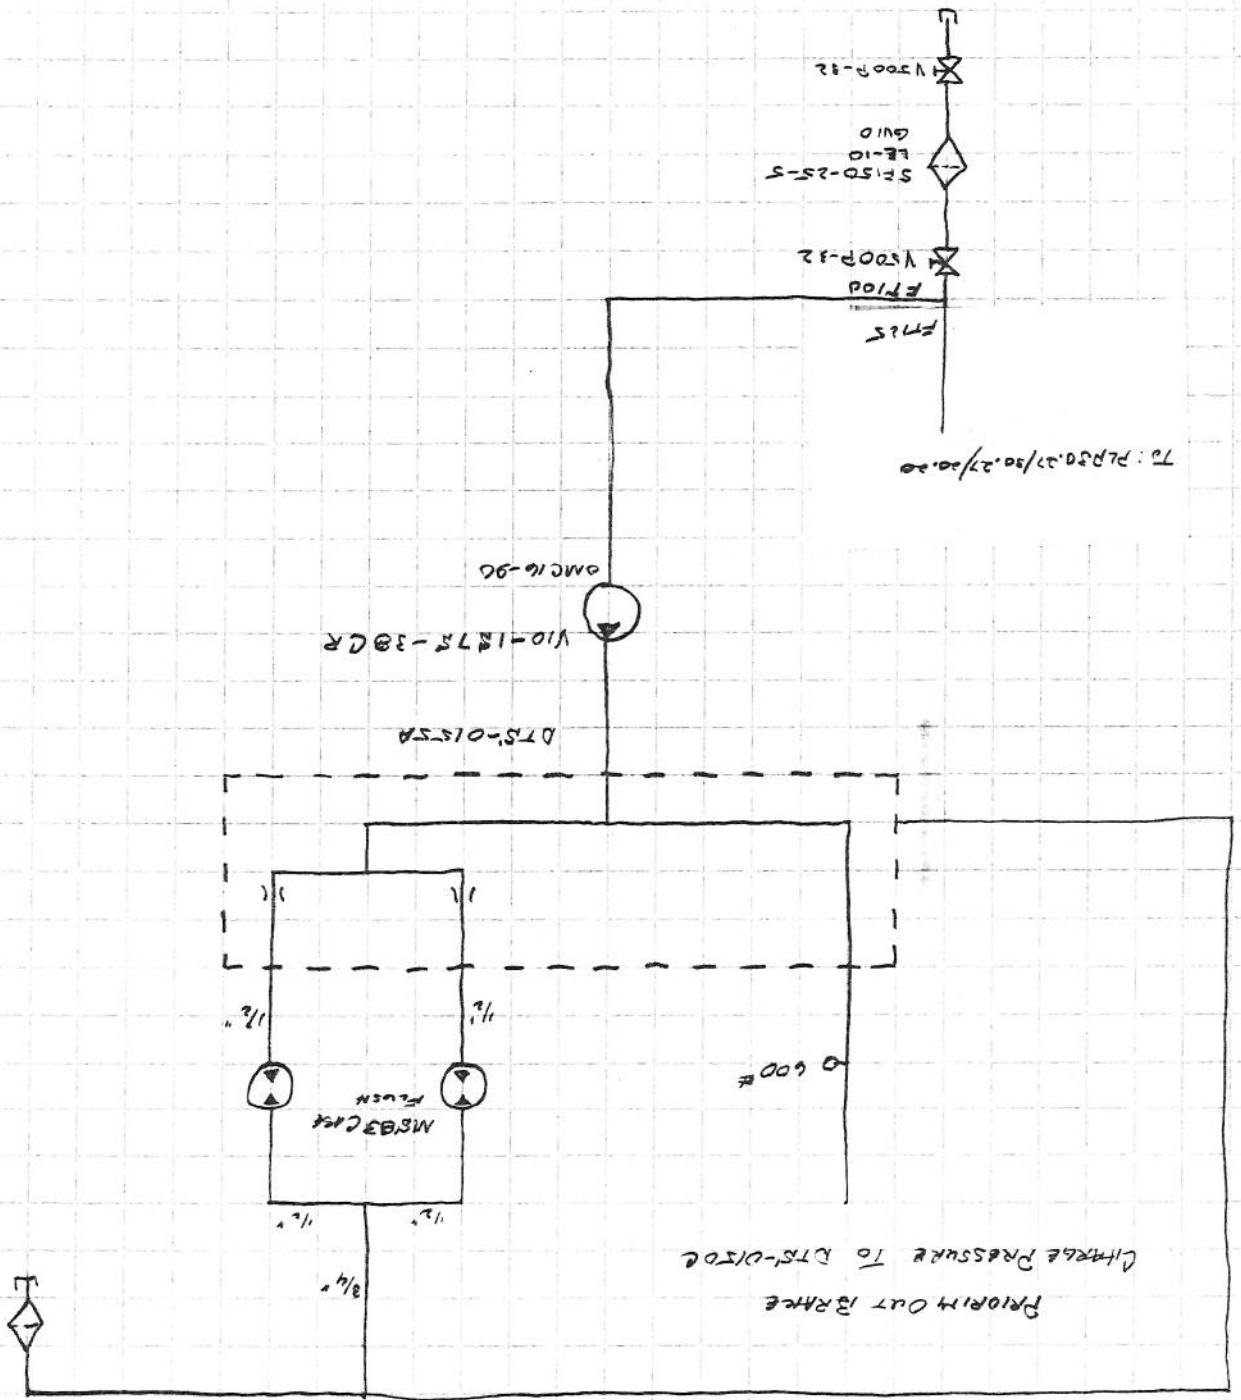 PRIORITY OUT BRAKE
CHARGE PRESSURE TO DTS-0150C
3/4"
1/2"
1/2"
MSB3 CASE
FLUSH
600#
1/2"
1/2"
DTS-0155A
V10-1S7S-38CR
OMC16-90
TO: PLP30.27/30.27/20.20
FT125
FT100
V500P-32
SF150-25-5
EE-10
GV10
V500P-32